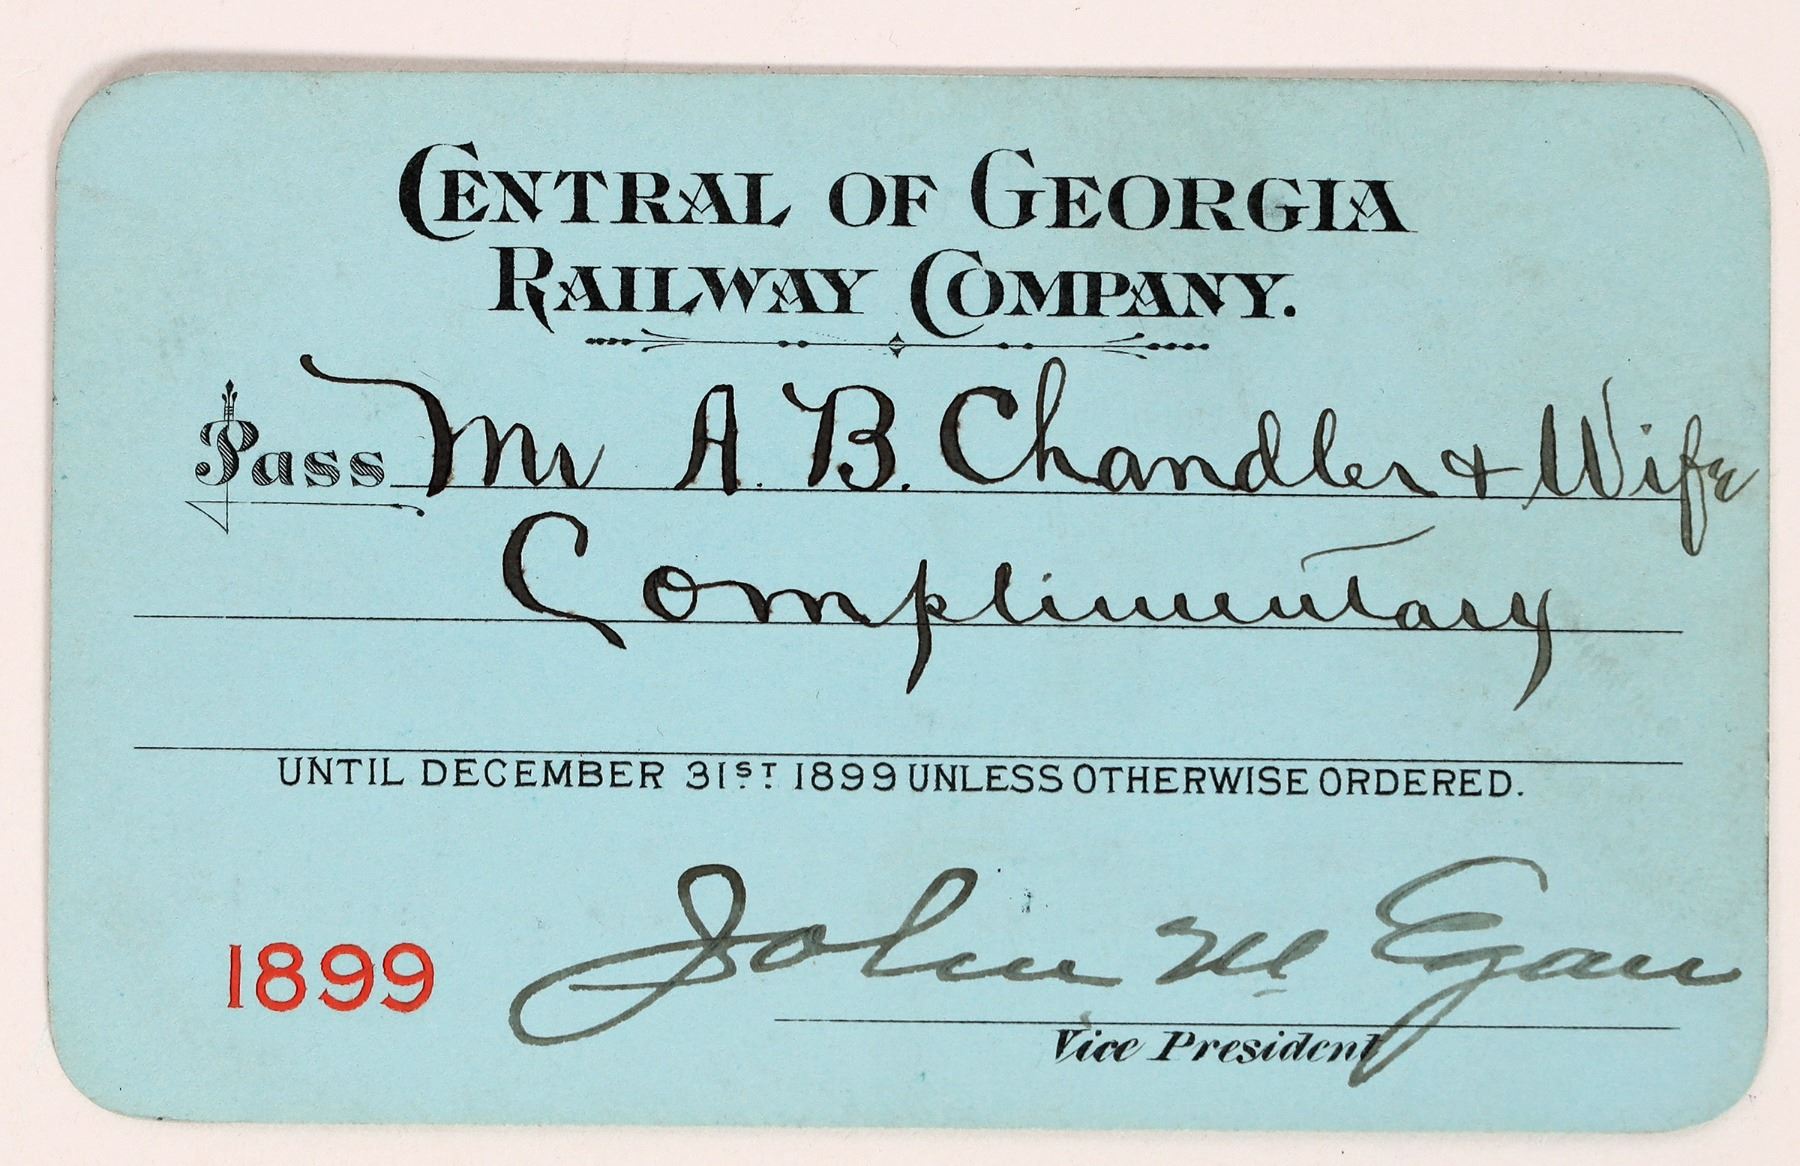 CENTRAL OF GEORGIA
RAILWAY COMPANY.
Pass Mr A. B. Chandler & Wife
Complimentary
UNTIL DECEMBER 31ST 1899 UNLESS OTHERWISE ORDERED.
John M Egan
1899
Vice President